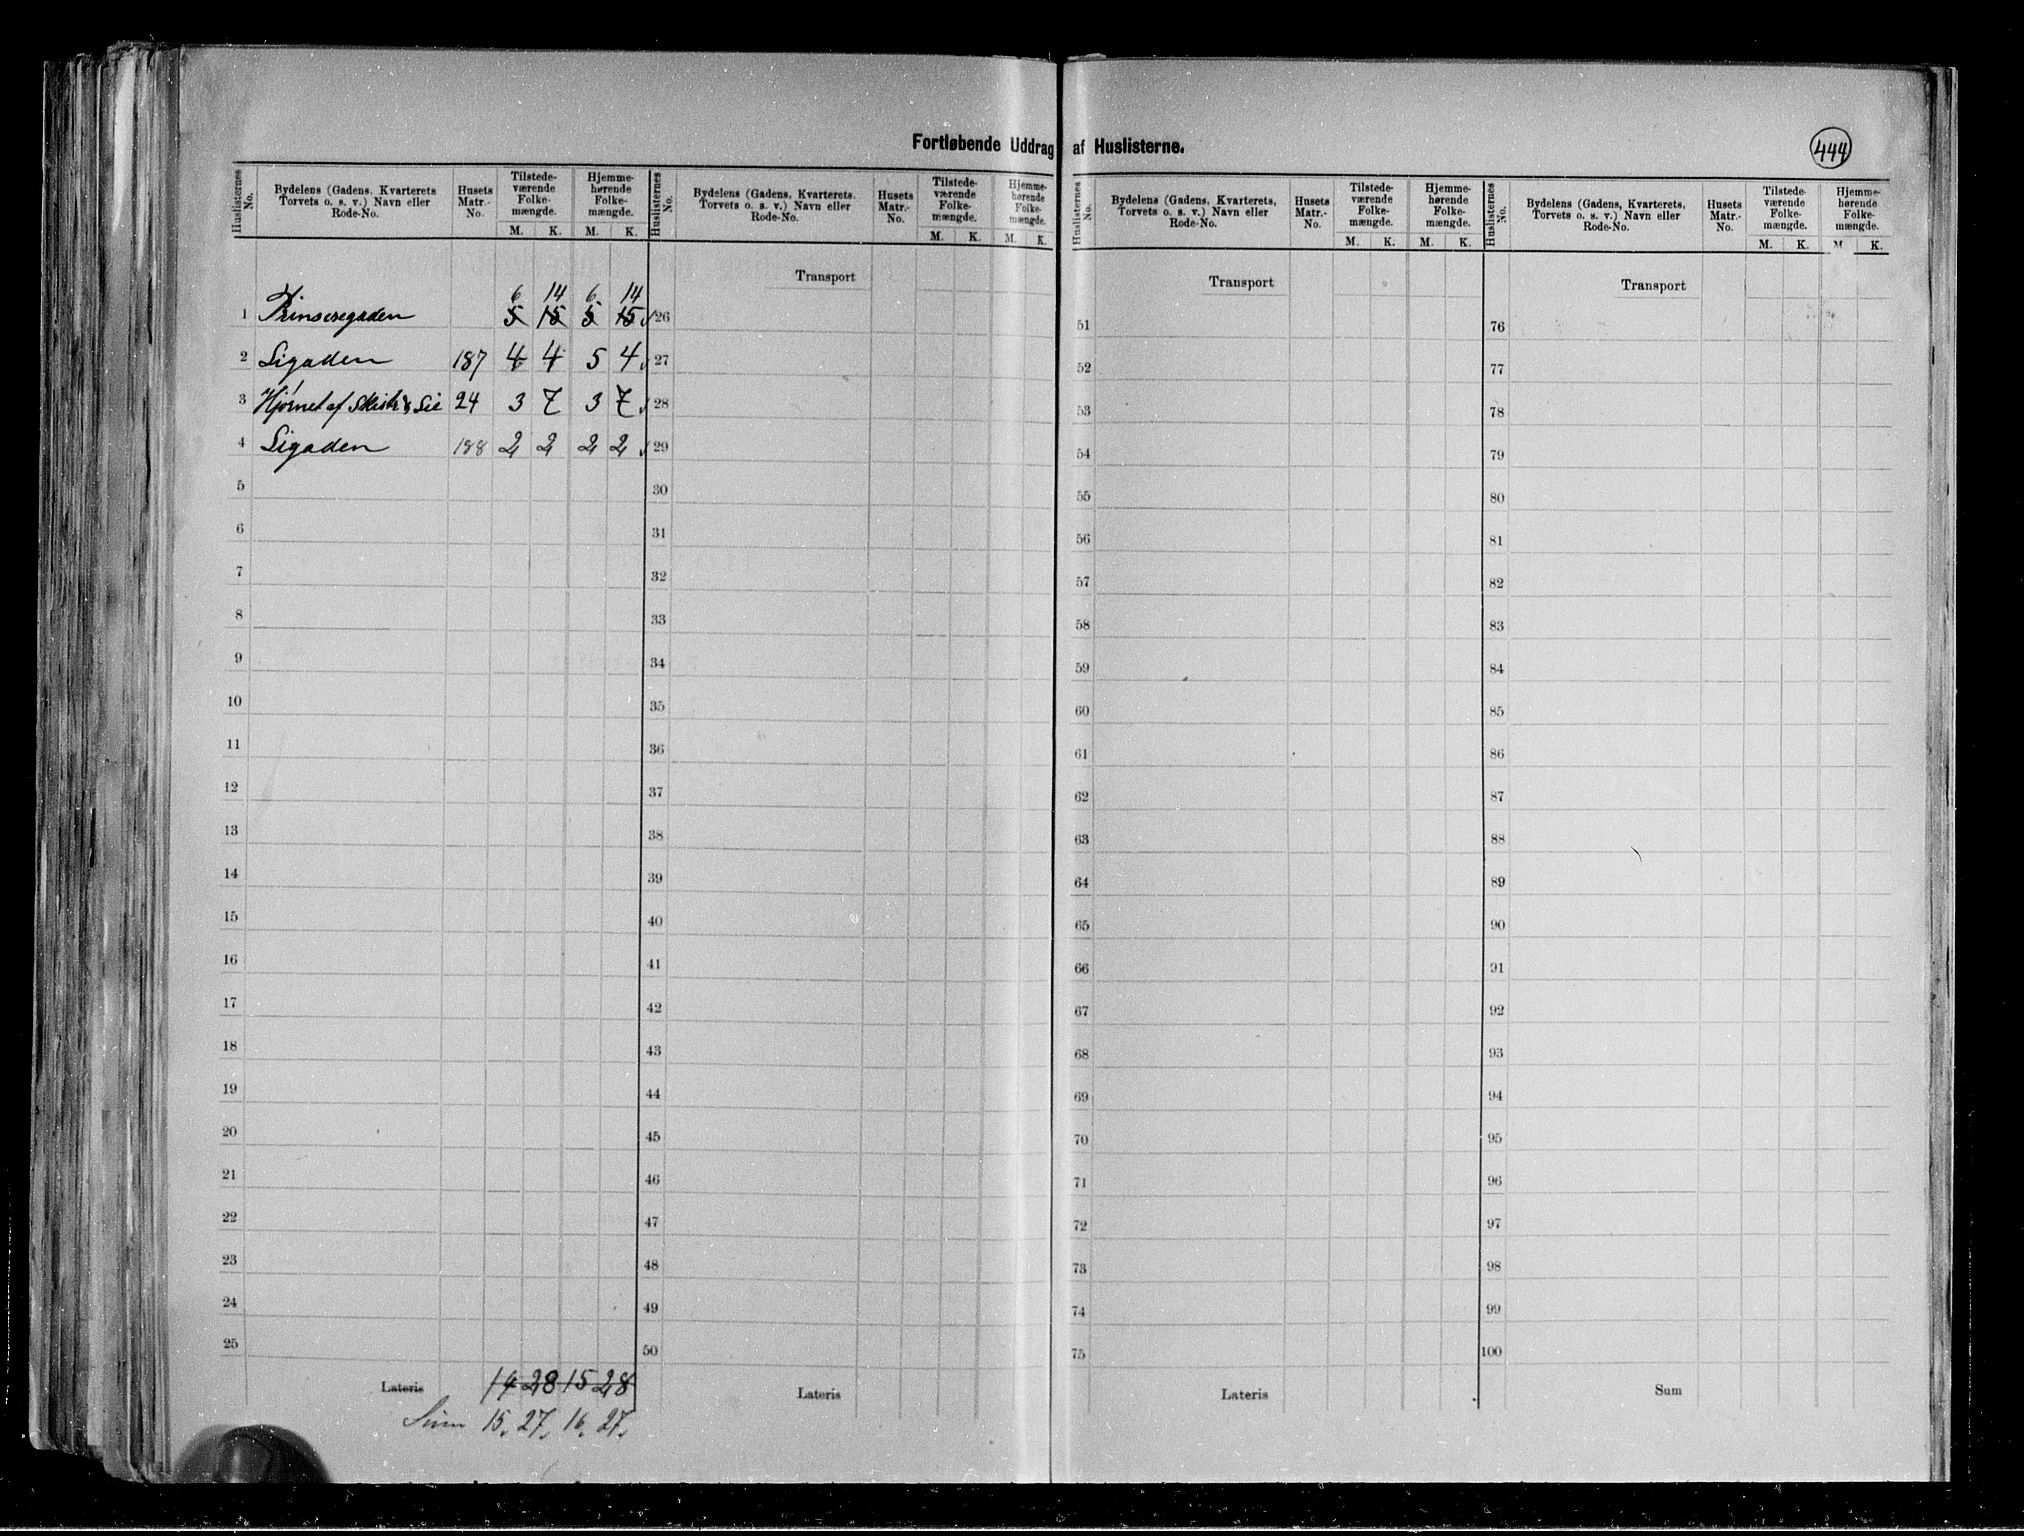 Fortløbende Uddrag af Huslisterne.
444
Huslisternes No. | Bydelens (Gadens, Kvarterets Torvets o. s. v.) Navn eller Rode-No. | Husets Matr.-No. | Tilstedeværende Folkemængde. M. K. | Hjemmehørende Folkemængde. M. K.
Huslisternes No. | Bydelens (Gadens, Kvarterets. Torvets o. s. v.) Navn eller Rode-No. | Husets Matr.-No. | Tilstedeværende Folkemængde. M. K. | Hjemmehørende Folkemængde. M. K.
Huslisternes No. | Bydelens (Gadens, Kvarterets, Torvets o. s. v.) Navn eller Rode-No. | Husets Matr.-No. | Tilstedeværende Folkemængde. M. K. | Hjemmehørende Folkemængde. M. K.
Huslisternes No. | Bydelens (Gadens, Kvarterets, Torvets o. s. v.) Navn eller Rode-No. | Husets Matr.-No. | Tilstedeværende Folkemængde. M. K. | Hjemmehørende Folkemængde. M. K.
Transport Transport Transport
6 14 6 14
1 Prinsesegaden 5 15 5 15 26 51 76
2 Sigaden 187 4 4 5 4 27 52 77
3 Hjørnet af & Sie 24 3 7 3 7 28 53 78
4 Sigaden 188 2 2 2 2 29 54 79
5 30 55 80
6 31 56 81
7 32 57 82
8 33 58 83
9 34 59 84
10 35 60 85
11 36 61 86
12 37 62 87
13 38 63 88
14 39 64 89
15 40 65 90
16 41 66 91
17 42 67 92
18 43 68 93
19 44 69 94
20 45 70 95
21 46 71 96
22 47 72 97
23 48 73 98
24 49 74 99
25 50 75 100
Lateris 14 28 15 28 Lateris Lateris Sum
Sum 15. 27. 16. 27.